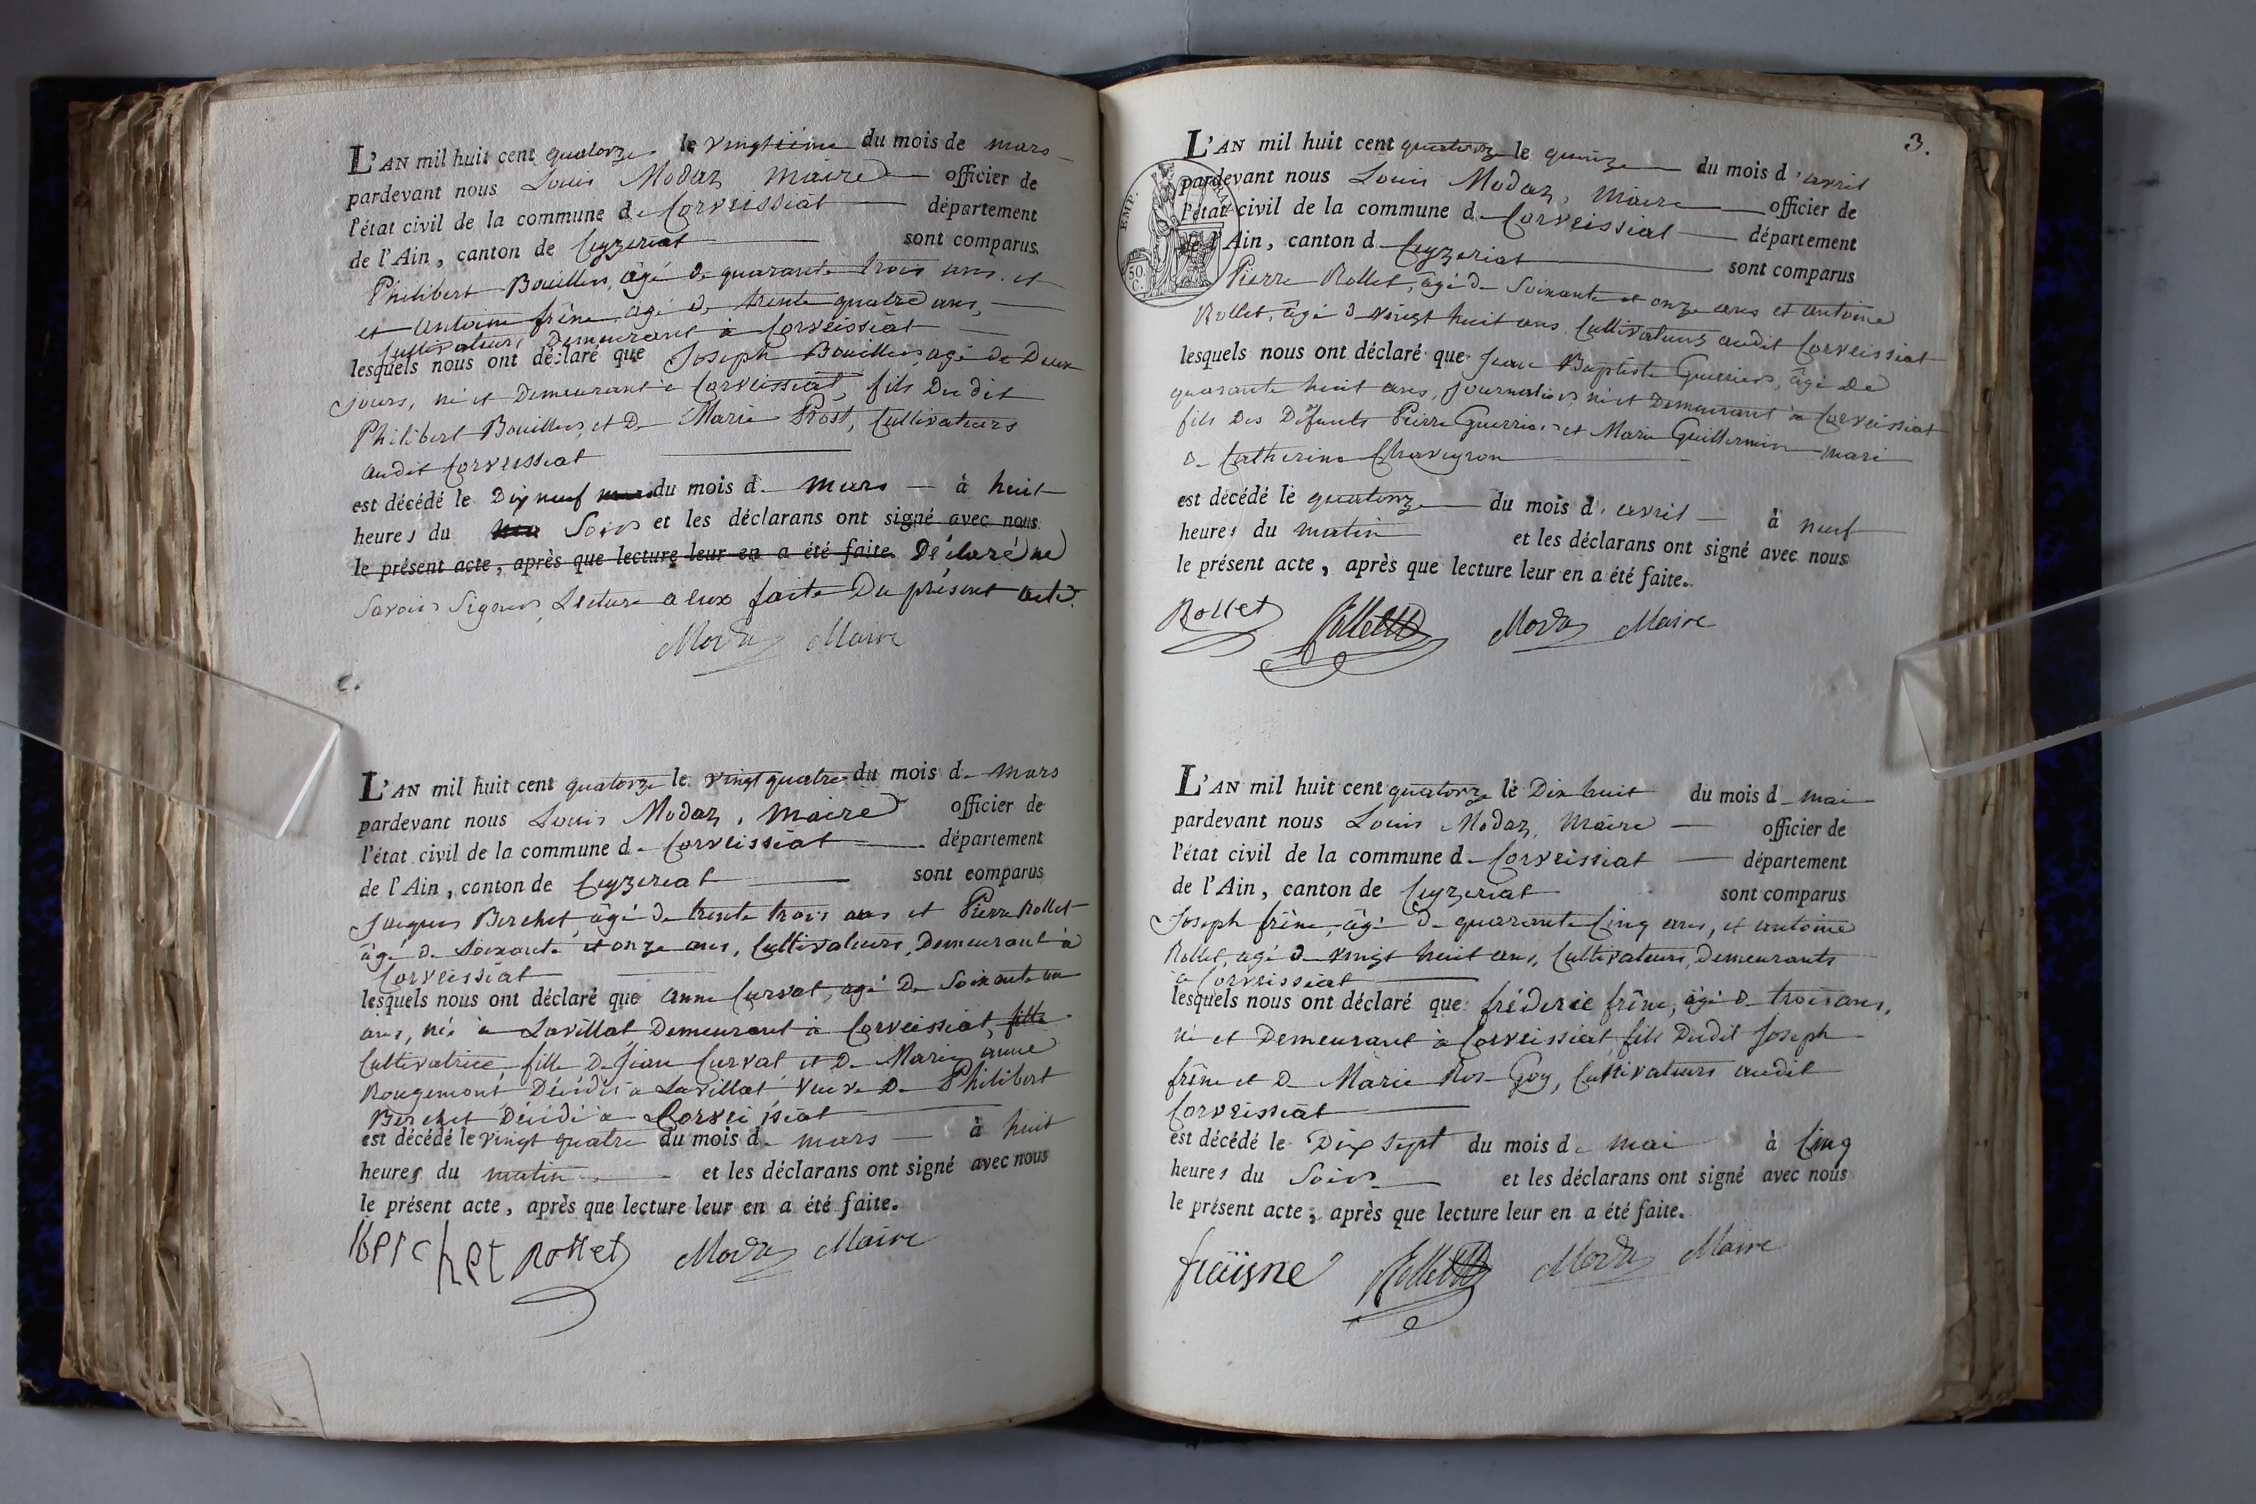 L'AN mil huit cent quatorze le vingtième du mois de mars
pardevant nous Louis Modaz Maire officier de
l'état civil de la commune de Corveissiat département
de l'Ain, canton de Ceyzeriat sont comparus
Philibert Bouillers, âgé de quarante trois ans et
et Antoine frêne, agé de trente quatre ans,
Cultivateurs Demeurant à Corveissiat
lesquels nous ont déclaré que Joseph Bouillers, agé de Deux
Jours, né et Demeurant à Corveissiat, fils Du dit
Philibert Bouillers, et De Marie Prost, Cultivateurs
audit Corveissiat
est décédé le Dix neuf du mois de mars à huit
heures du Soir et les déclarans ont signé avec nous
le présent acte, après que lecture leur en a été faite. Déclaré ne
Savoir Signer, Lecture a eux faite Du présent acte.
Moda Maire
L'AN mil huit cent quatorze le vingt quatre du mois de mars
pardevant nous Louis Modaz, Maire officier de
l'état civil de la commune de Corveissiat département
de l'Ain, canton de Ceyzeriat sont comparus
Jacques Berchet, âgé de trente trois ans et Pierre Rollet
âgé de Soixante et onze ans, Cultivateurs, Demeurant à
Corveissiat
lesquels nous ont déclaré que anne Curvat, agé De Soixante un
ans, née à Lavillat, Demeurant à Corveissiat, fille
Cultivatrice, fille De Jean Curvat et De Marie anne
Rougemont Décédés à Lavillat veuve De Philibert
Berchet Décédé à Corveissiat
est décédé le vingt quatre du mois de mars à huit
heures du matin et les déclarans ont signé avec nous
le présent acte, après que lecture leur en a été faite.
berchet Rollet Moda Maire
3.
L'AN mil huit cent quatorze le quinze du mois d'avril
pardevant nous Louis Modaz, Maire officier de
l'état civil de la commune de Corveissiat département
de l'Ain, canton de Ceyzeriat sont comparus
EMP.
50.
C.
Pierre Rollet, âgé de Soixante et onze ans et antoine
Rollet, âgé de vingt huit ans Cultivateurs audit Corveissiat
lesquels nous ont déclaré que Jean Baptiste Guerrier, âgé De
quarante huit ans, Journalier, né et Demeurant à Corveissiat
fils Des Défunts Pierre Guerrier et Marie Guillermin mari
de Catherine Chaveyron
est décédé le quatorze du mois d'avril à neuf
heures du matin et les déclarans ont signé avec nous
le présent acte, après que lecture leur en a été faite.
Rollet Rollet Moda Maire
L'AN mil huit cent quatorze le Dix huit du mois de mai
pardevant nous Louis Modaz, Maire officier de
l'état civil de la commune de Corveissiat département
de l'Ain, canton de Ceyzeriat sont comparus
Joseph frêne, âgé de quarante Cinq ans, et antoine
Rollet, agé de vingt huit ans, Cultivateurs, Demeurants
à Corveissiat
lesquels nous ont déclaré que fréderic frêne, âgé de trois ans,
né et Demeurant à Corveissiat fils Dudit Joseph
frêne et De Marie Rose Goy, Cultivateurs audit
Corveissiat
est décédé le Dix Sept du mois de mai à Cinq
heures du Soir et les déclarans ont signé avec nous
le présent acte, après que lecture leur en a été faite.
fraisne Rollet Moda Maire